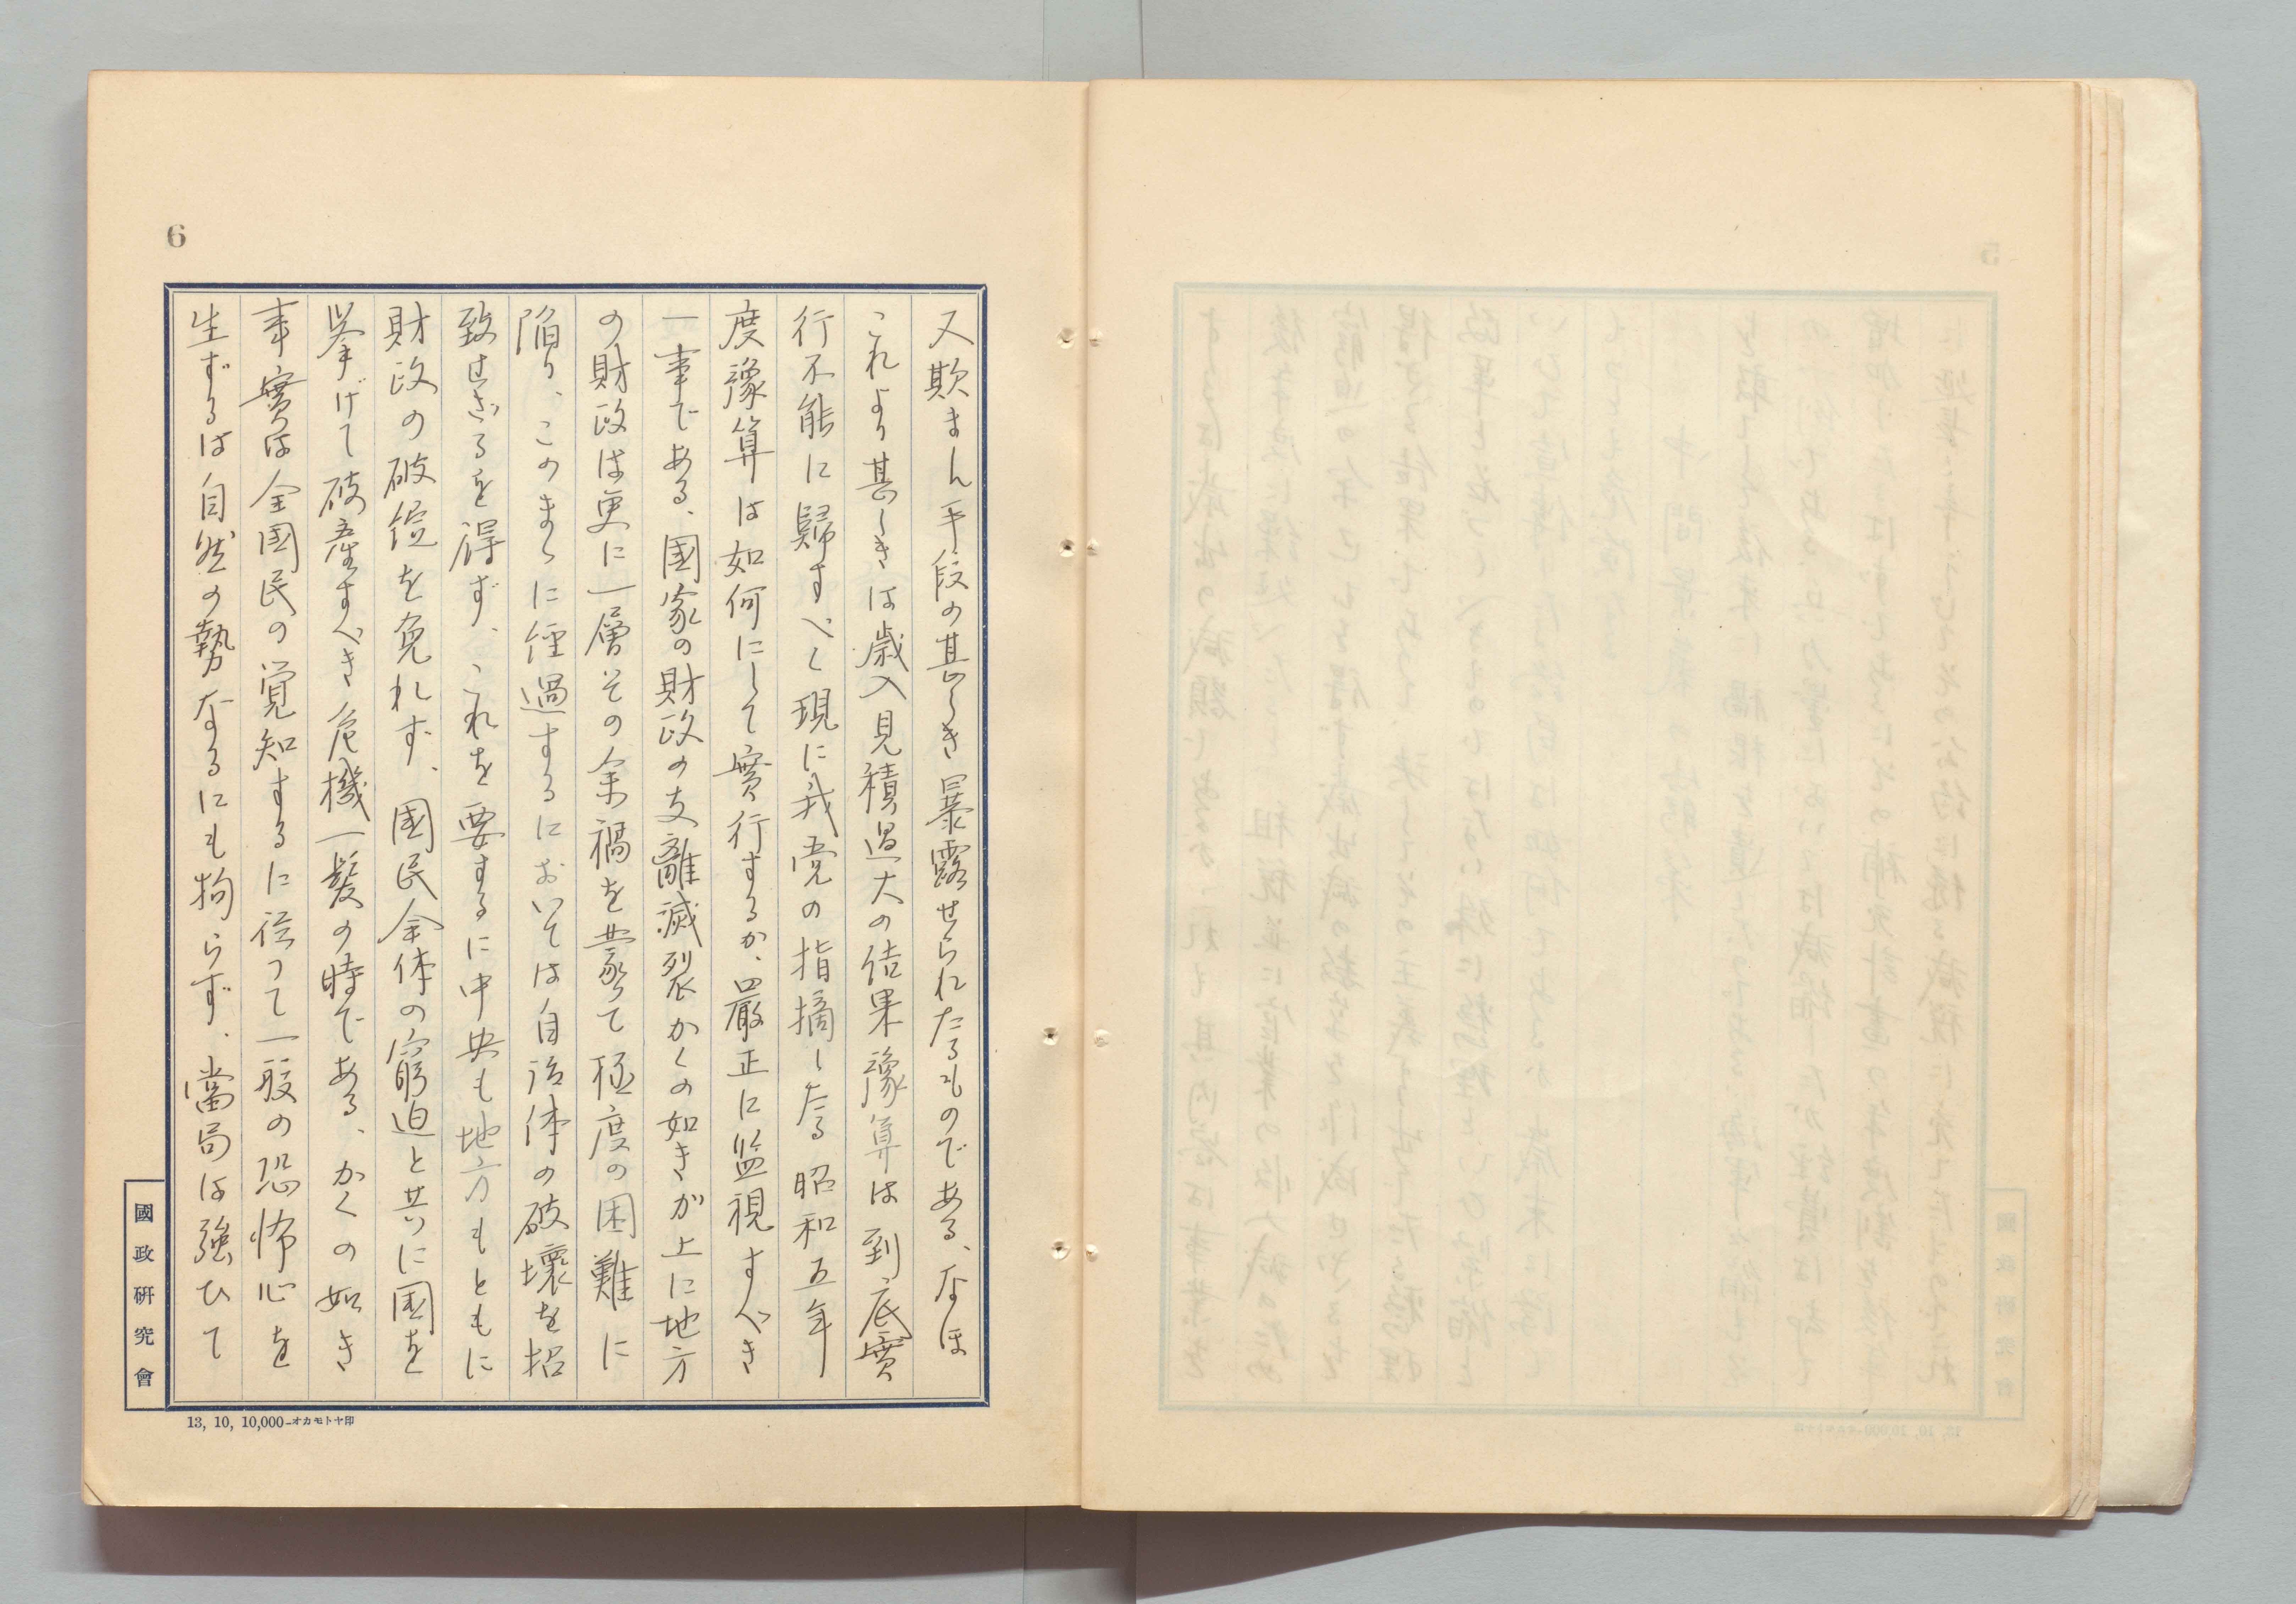 6
又欺まん手段の甚しき暴露せられたるものである、なほ
これより甚しきは歳入見積過大の結果豫算は到底實
行不能に歸すべく現に我党の指摘したる昭和五年
度豫算は如何にして實行するか、嚴正に監視すべき
一事である、國家の財政の支離滅裂かくの如きが上に地方
の財政は更に一層その余禍を蒙つて極度の困難に
陥り、このまゝに経過するにおいては自治体の破壞を招
致せざるを得ず、これを要するに中央も地方もともに
財政の破綻を免れず、國民全体の窮迫と共に國を
挙げて破産すべき危機一髪の時である、かくの如き
事實は全國民の覚知するに従つて一般の恐怖心を
生ずるは自然の勢なるにも拘らず、當局は強ひて
國政研究會
13, 10, 10,000-オカモトヤ印